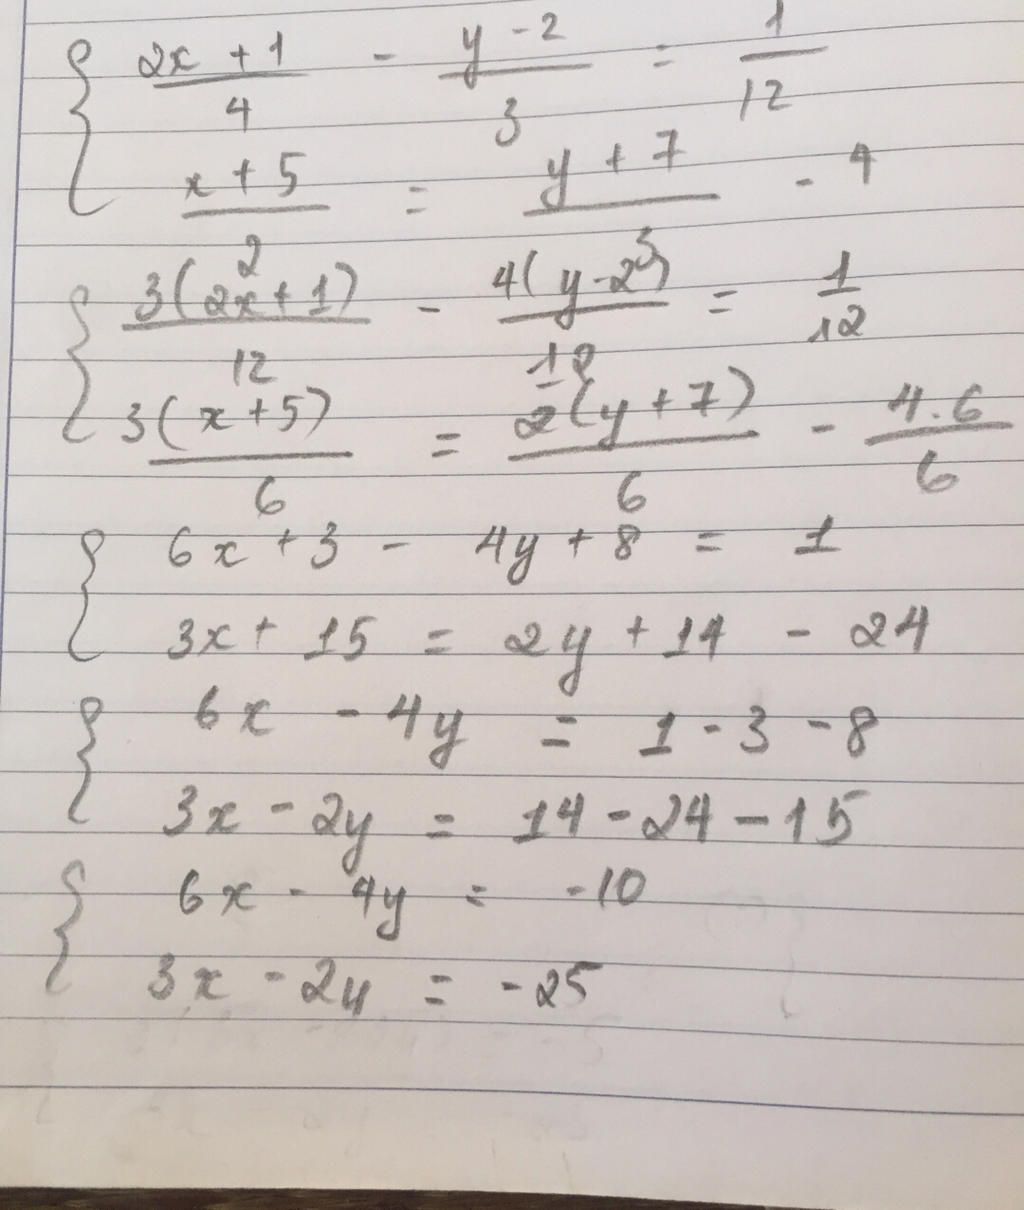 { (2x + 1)/4 - (y - 2)/3 = 1/12
(x + 5)/2 = (y + 7)/3 - 4
{ 3(2x + 1)/12 - 4(y - 2)/12 = 1/12
3(x + 5)/6 = 2(y + 7)/6 - 4.6/6
{ 6x + 3 - 4y + 8 = 1
3x + 15 = 2y + 14 - 24
{ 6x - 4y = 1 - 3 - 8
3x - 2y = 14 - 24 - 15
{ 6x - 4y = -10
3x - 2y = -25